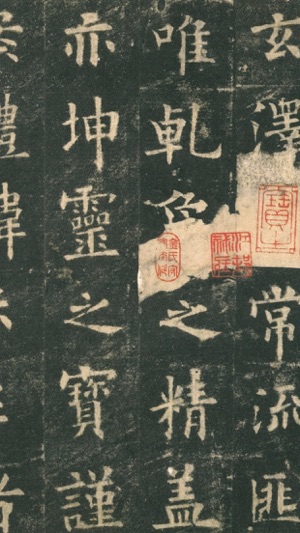 玄澤常流匪
唯乹象之精盖
亦坤靈之寶謹
禮緯者